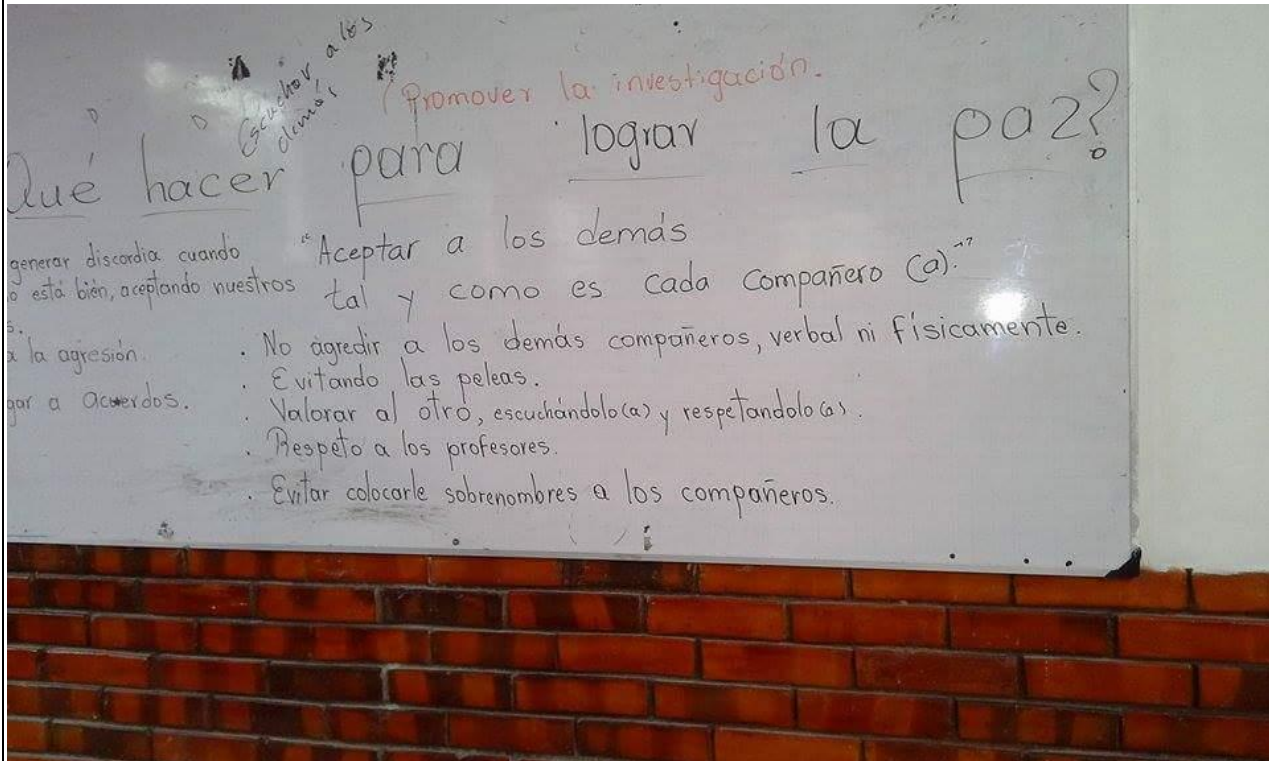 Escuchar a los
demás
Promover la investigación.
Qué hacer para lograr la paz?
generar discordia cuando
está bién, aceptando nuestros
la agresión.
a acuerdos.
"Aceptar a los demás
tal y como es cada compañero (a)."
. No agredir a los demás compañeros, verbal ni físicamente.
. Evitando las peleas.
. Valorar al otro, escuchándolo(a) y respetandolo(a).
. Respeto a los profesores.
. Evitar colocarle sobrenombres a los compañeros.